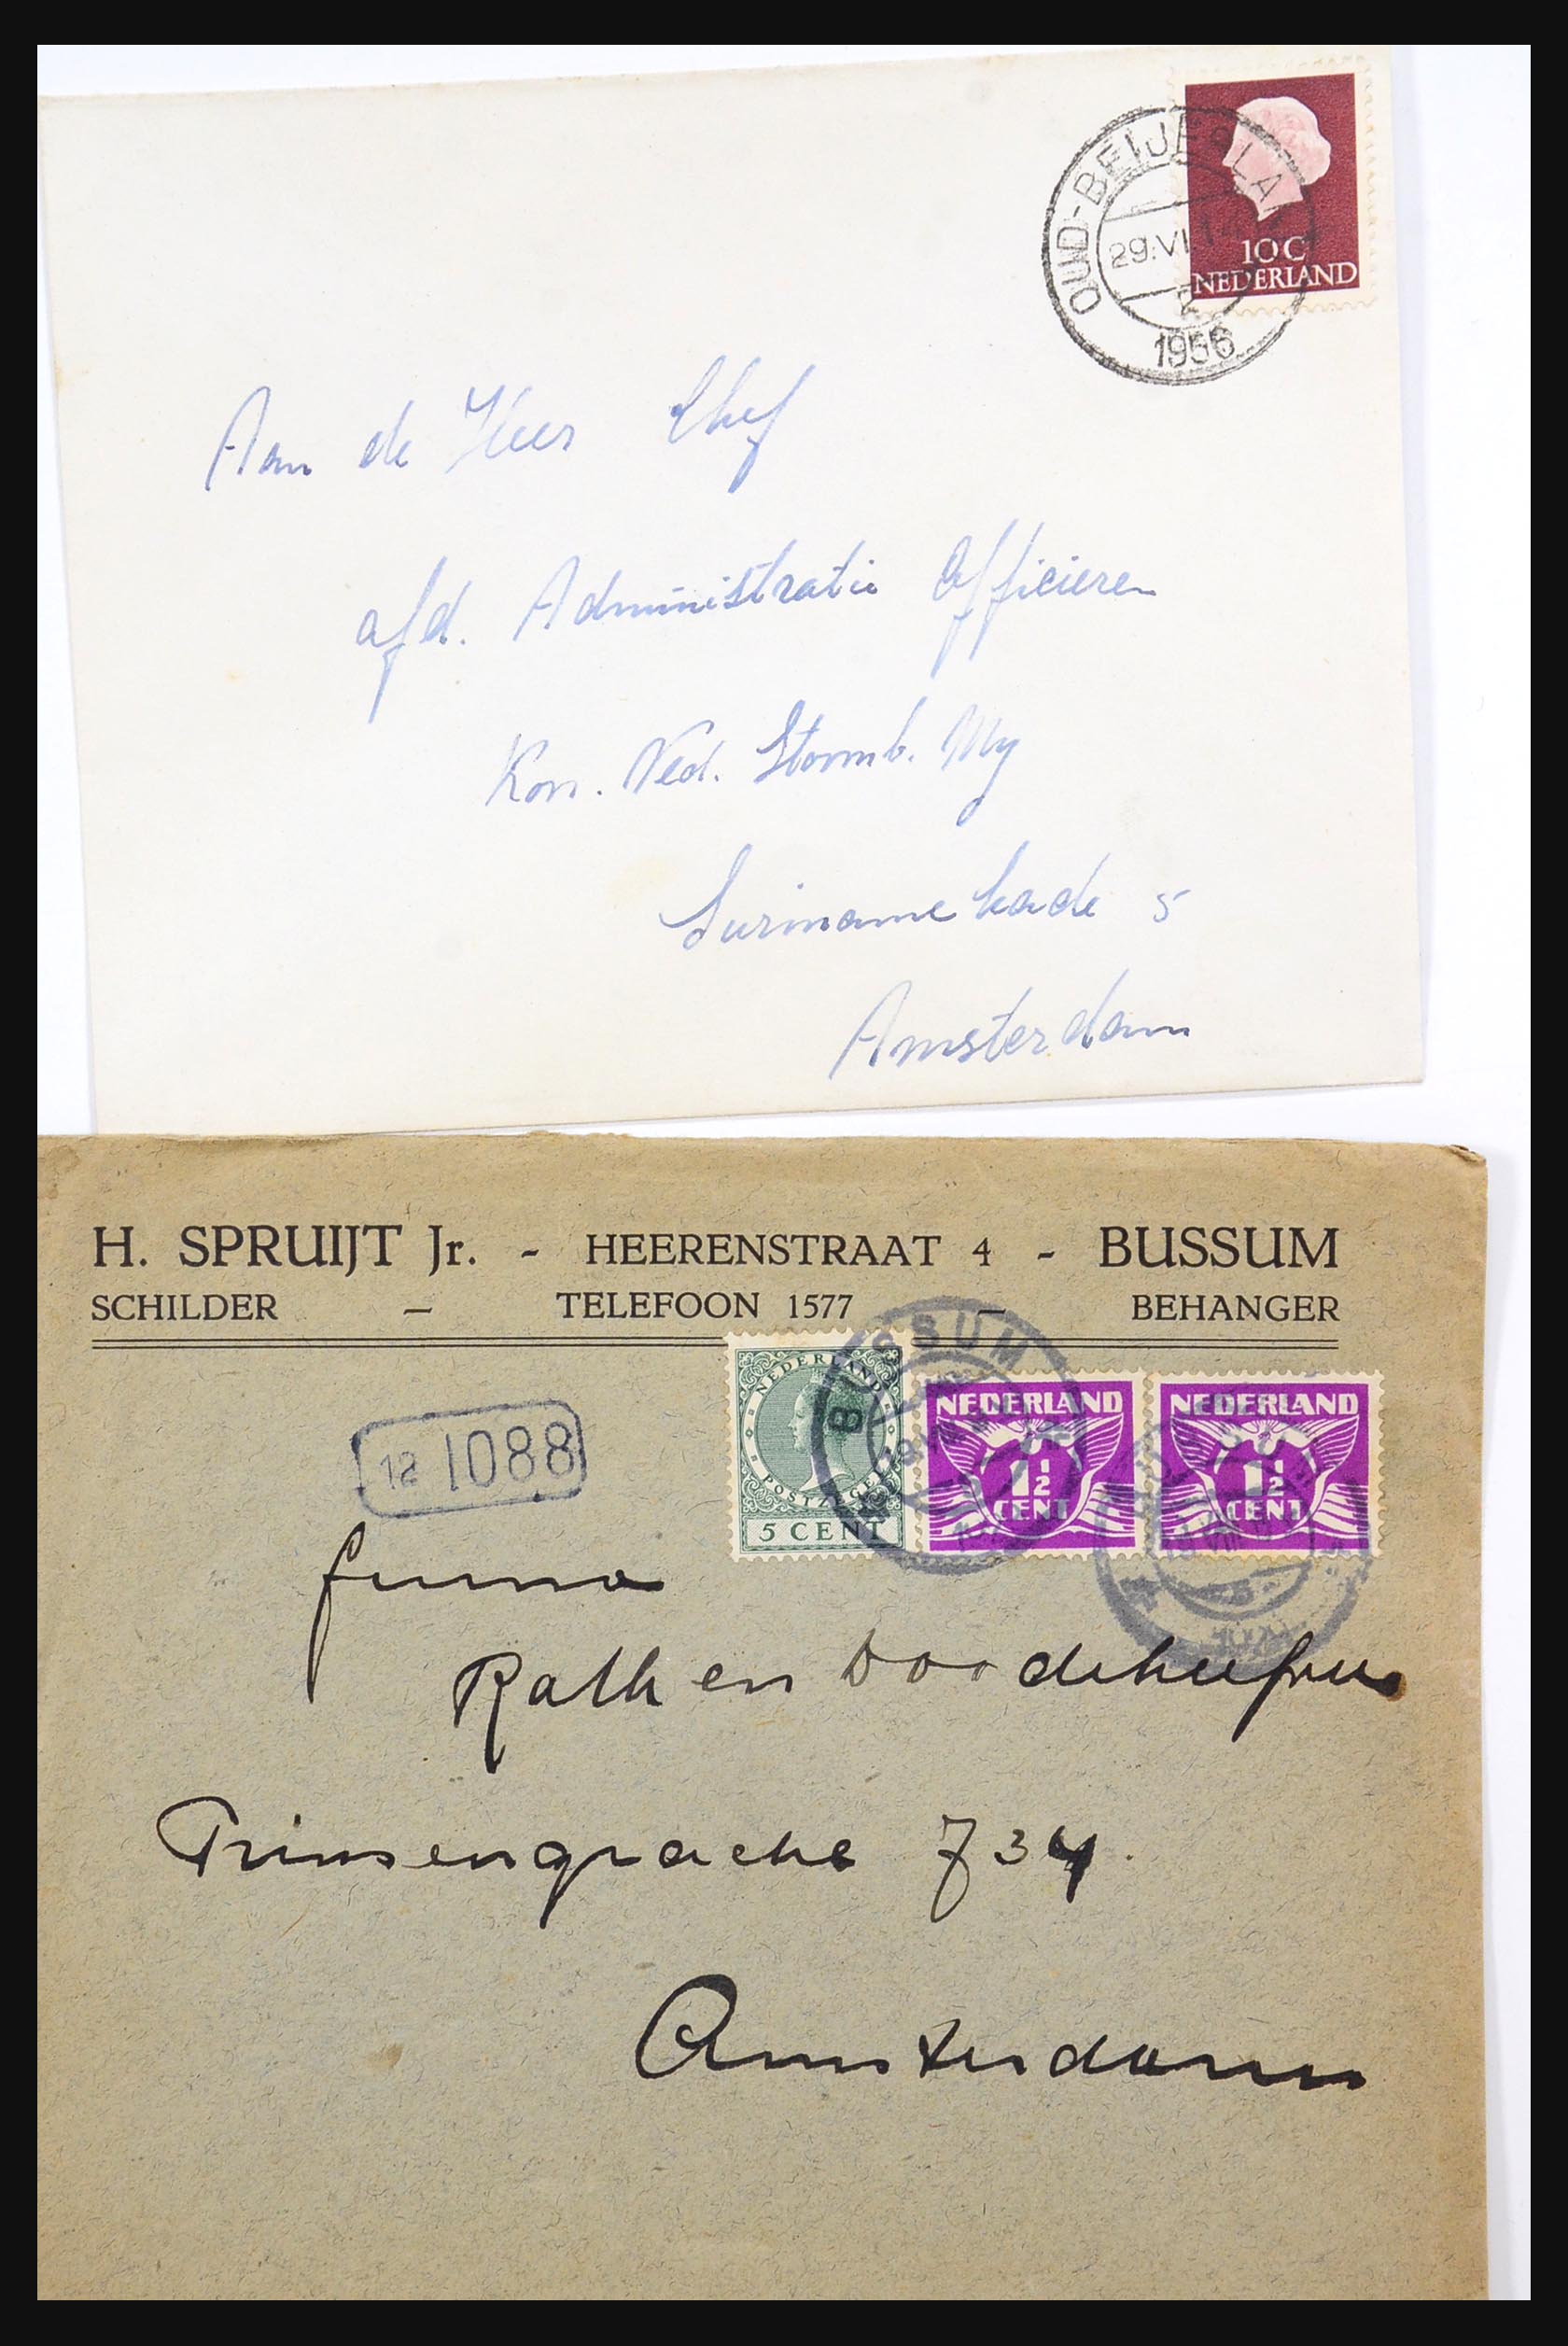 OUD-BEIJERLA
29.VI.14
1956
10C
NEDERLAND
Aan de Heer Chef
afd. Administratie Officieren
Kon. Ned. Stoomb. My
Surinamekade 5
Amsterdam
H. SPRUIJT Jr. - HEERENSTRAAT 4 - BUSSUM
SCHILDER — TELEFOON 1577 — BEHANGER
BUSSUM
NEDERLAND
POSTZEGEL
5 CENT
NEDERLAND
1½
CENT
NEDERLAND
1½
CENT
12 1088
firma
Rath en Doodeheefver
Prinsengracht 734.
Amsterdam